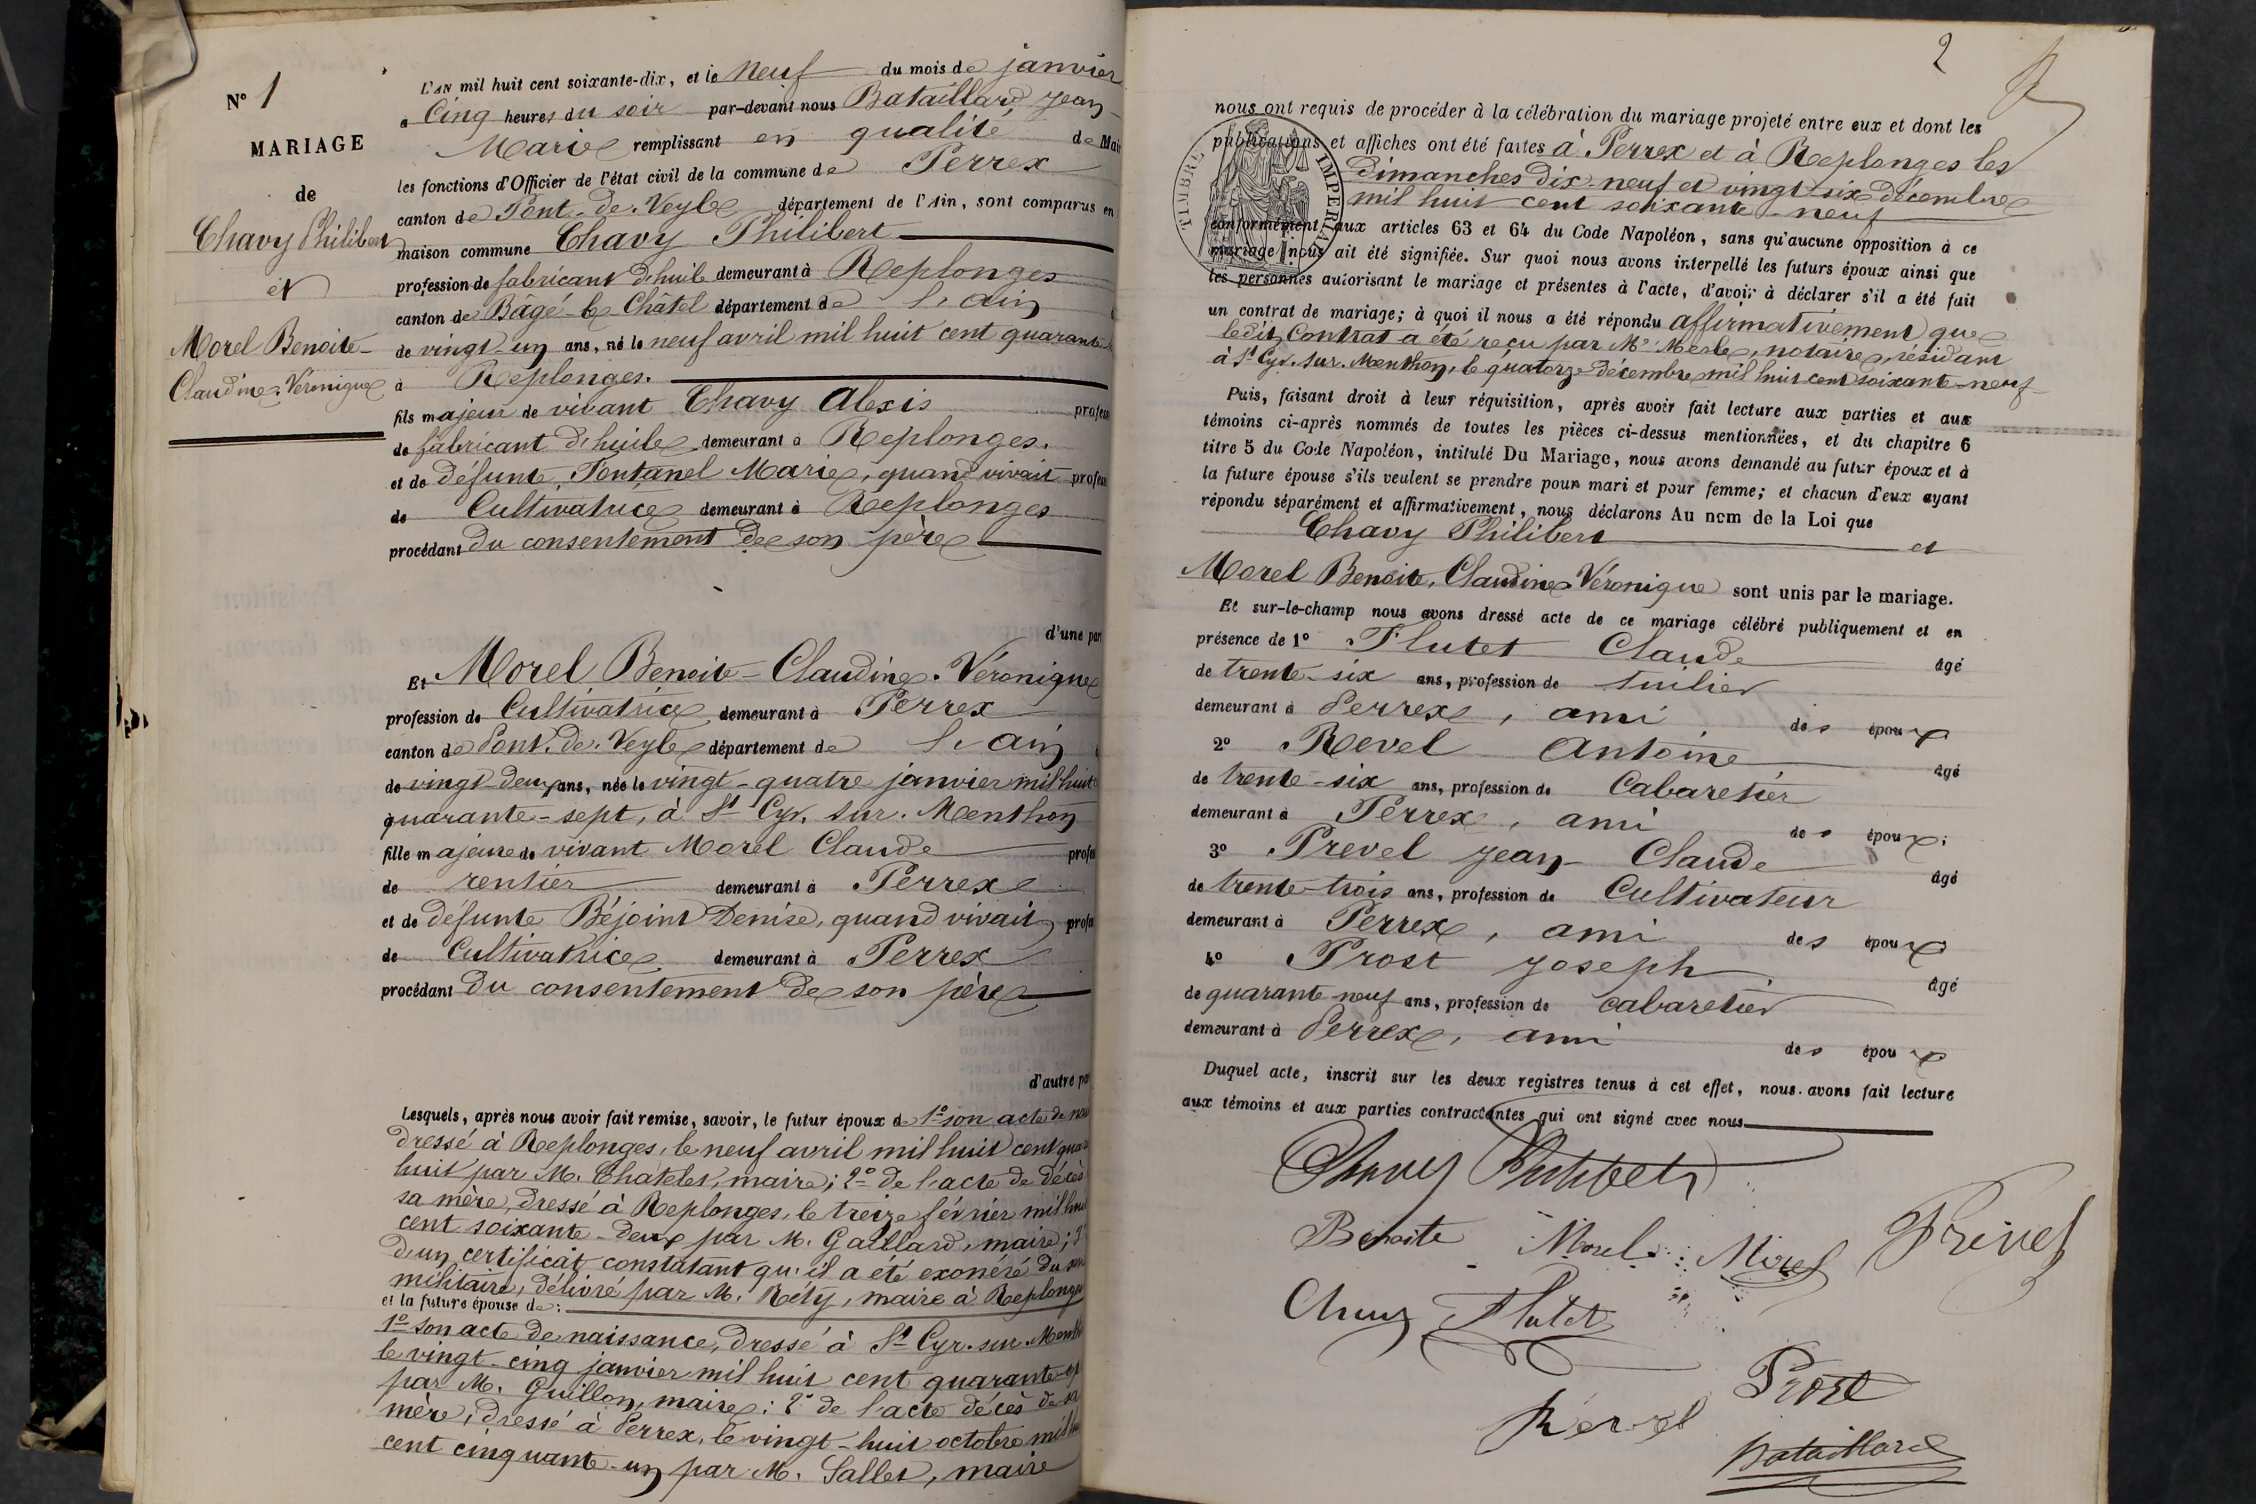 N° 1
MARIAGE
de
Chavy Philibert
et
Morel Benoite-
Claudine. Véronique
L'AN mil huit cent soixante-dix, et le neuf du mois de janvier
a cinq heures du soir par-devant nous Bataillard Jean-
Marie remplissant en qualité de Mai
les fonctions d'Officier de l'état civil de la commune de Perrex
canton de Pont-de-Veyle département de l'Ain, sont comparus en
maison commune Chavy Philibert
profession de fabricant d'huile demeurant à Replonges
canton de Bâgé-le Châtel département de l'ain
de vingt-un ans, né le neuf avril mil huit cent quarante
à Replonges.
fils majeur de vivant Chavy Alexis profess
de fabricant d'huile demeurant à Replonges.
et de défunte Fontanel Marie, quand vivait profess
de Cultivatrice demeurant à Replonges
procédant du consentement de son père
d'une par
Et Morel Benoite-Claudine. Véronique
profession de Cultivatrice demeurant à Perrex
canton de Pont. de. Veyle département de l'ain
de vingt-deux ans, née le vingt-quatre janvier mil huit
quarante-sept, à St Cyr. sur. Menthon
fille majeure de vivant Morel Claude profes
de rentier demeurant à Perrex
et de défunte Béjoint Denise, quand vivait profes
de Cultivatrice demeurant à Perrex
procédant du consentement de son père
d'autre pa
Lesquels, après nous avoir fait remise, savoir, le futur époux de 1° son acte de nais
dressé à Replonges, le neuf avril mil huit cent quar
huit par M. Chatelet, maire; 2° de l'acte de décès
sa mère, dressé à Replonges, le treize février mil hui
cent soixante-deux par M. Gaillard, maire; 3°
d'un certificat constatant qu'il a été exonéré du ser
militaire, délivré par M. Réty, maire à Replonges
et la future épouse de:
1° son acte de naissance, dressé à St Cyr. sur Menth
le vingt-cinq janvier mil huit cent quarante-sept
par M. Guillon, maire; 2° de l'acte décès de sa
mère, dressé à Perrex, le vingt-huit octobre mil hu
cent cinquante-un par M. Sallet, maire
2
nous ont requis de procéder à la célébration du mariage projeté entre eux et dont les
publications et affiches ont été faites à Perrex et à Replonges les
dimanches dix-neuf et vingt-six décembre
mil huit cent soixante-neuf
TIMBRE IMPERIAL
conformément aux articles 63 et 64 du Code Napoléon, sans qu'aucune opposition à ce
mariage nous ait été signifiée. Sur quoi nous avons interpellé les futurs époux ainsi que
les personnes autorisant le mariage et présentes à l'acte, d'avoir à déclarer s'il a été fait
un contrat de mariage; à quoi il nous a été répondu affirmativement que
ledit Contrat a été reçu par Me Merle, notaire, résidant
à St Cyr. sur. Menthon, le quatorze décembre mil huit cent soixante-neuf
Puis, faisant droit à leur réquisition, après avoir fait lecture aux parties et aux
témoins ci-après nommés de toutes les pièces ci-dessus mentionnées, et du chapitre 6
titre 5 du Code Napoléon, intitulé Du Mariage, nous avons demandé au futur époux et à
la future épouse s'ils veulent se prendre pour mari et pour femme; et chacun d'eux ayant
répondu séparément et affirmativement, nous déclarons Au nom de la Loi que
Chavy Philibert et
Morel Benoite, Claudine Véronique sont unis par le mariage.
Et sur-le-champ nous avons dressé acte de ce mariage célébré publiquement et en
présence de 1° Flutet Claude âgé
de trente-six ans, profession de tuilier
demeurant à Perrex, ami des époux
2° Revel Antoine âgé
de trente-six ans, profession de Cabaretier
demeurant à Perrex, ami des époux;
3° Prevel Jean-Claude âgé
de trente-trois ans, profession de Cultivateur
demeurant à Perrex, ami des époux
4° Prost Joseph âgé
de quarante-neuf ans, profession de cabaretier
demeurant à Perrex, ami des époux
Duquel acte, inscrit sur les deux registres tenus à cet effet, nous avons fait lecture
aux témoins et aux parties contractantes qui ont signé avec nous
Chavy Philibert
Benoite Morel Morel Prevel
Chavy Flutet
Prost
Revel
Bataillard